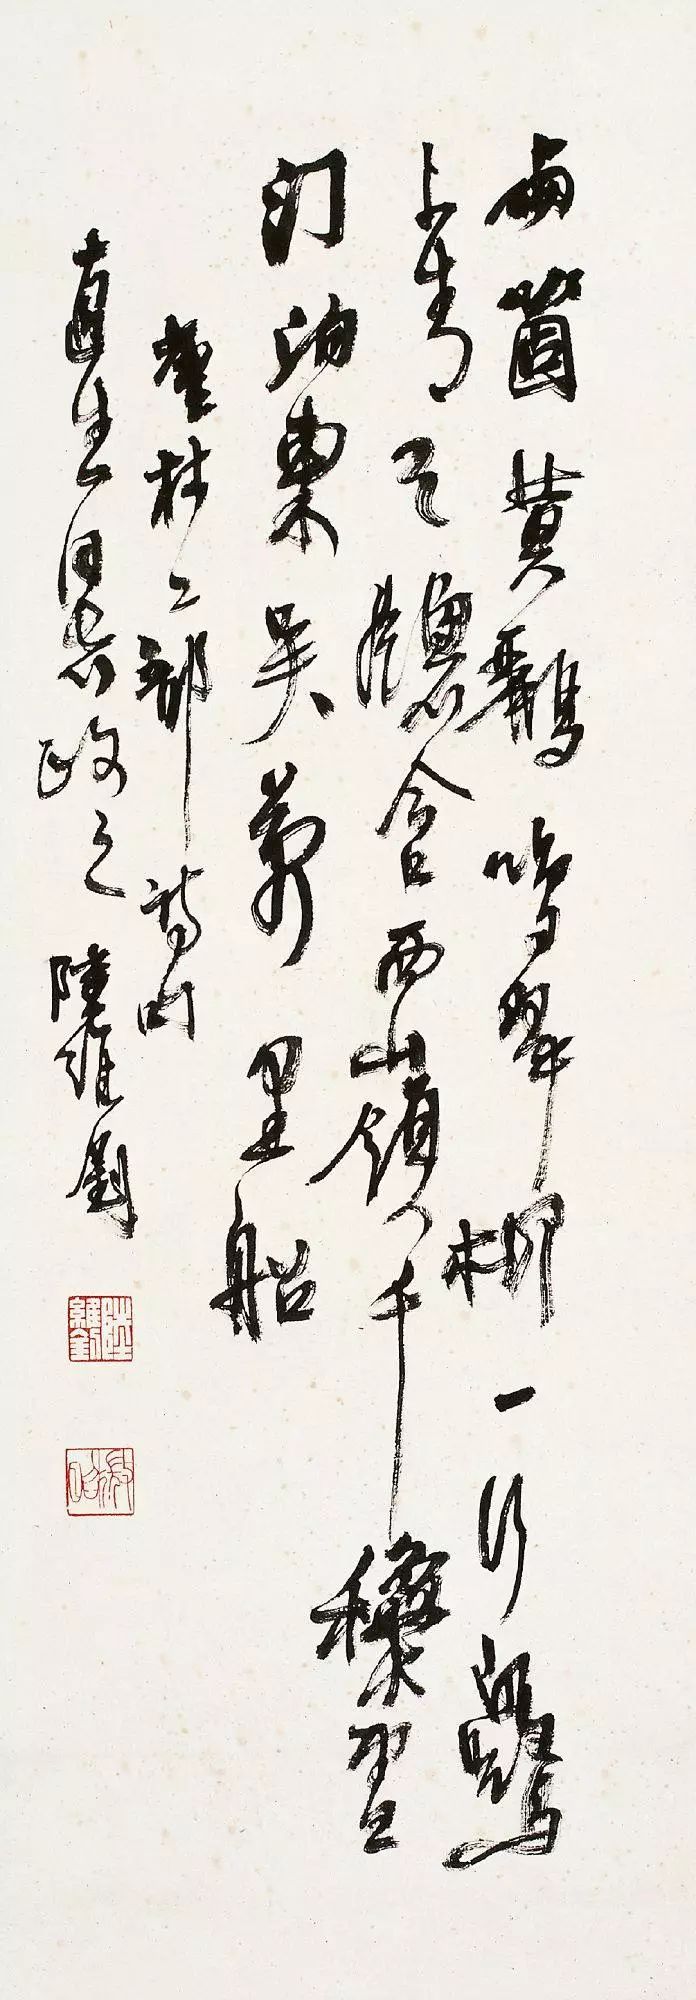 兩箇黃鸝鳴翠柳一行鷺
上青天牕含西嶺千龝雪
門泊東吳萬里船
書杜工部詩句
直生同志政之 陸維釗
陸維釗
微昭